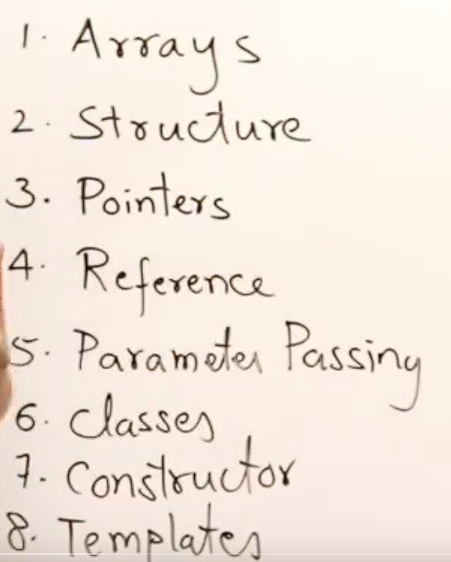 1. Arrays
2. Structure
3. Pointers
4. Reference
5. Parameter Passing
6. Classes
7. Constructor
8. Templates